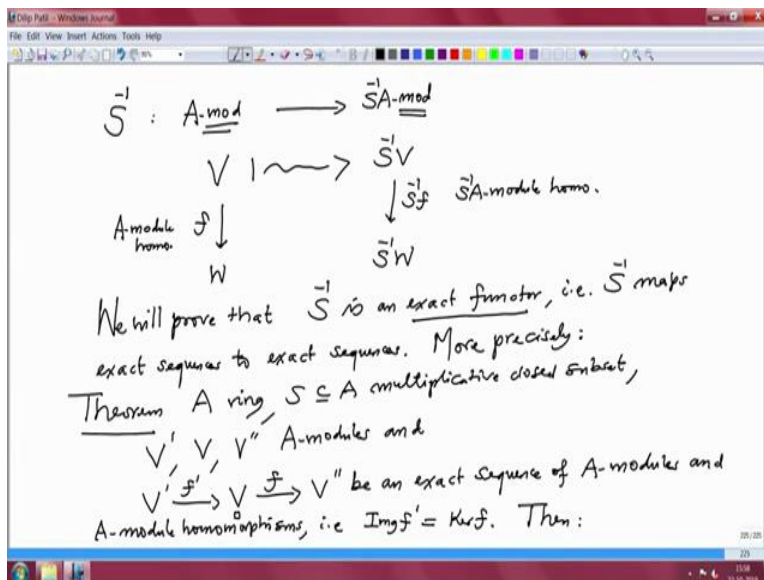 Dilip Patil - Windows Journal
File Edit View Insert Actions Tools Help
S⁻¹ : A-mod ⟶ S⁻¹A-mod
V ⟼ S⁻¹V
A-module homo. f ↓ ↓ S⁻¹f S⁻¹A-module homo.
W S⁻¹W
We will prove that S⁻¹ is an exact functor, i.e. S⁻¹ maps
exact sequences to exact sequences. More precisely:
Theorem A ring, S ⊆ A multiplicative closed subset,
V', V, V'' A-modules and
V' –f'→ V –f→ V'' be an exact sequence of A-modules and
A-module homomorphisms, i.e Img f' = Ker f. Then:
225/225
225
15:58